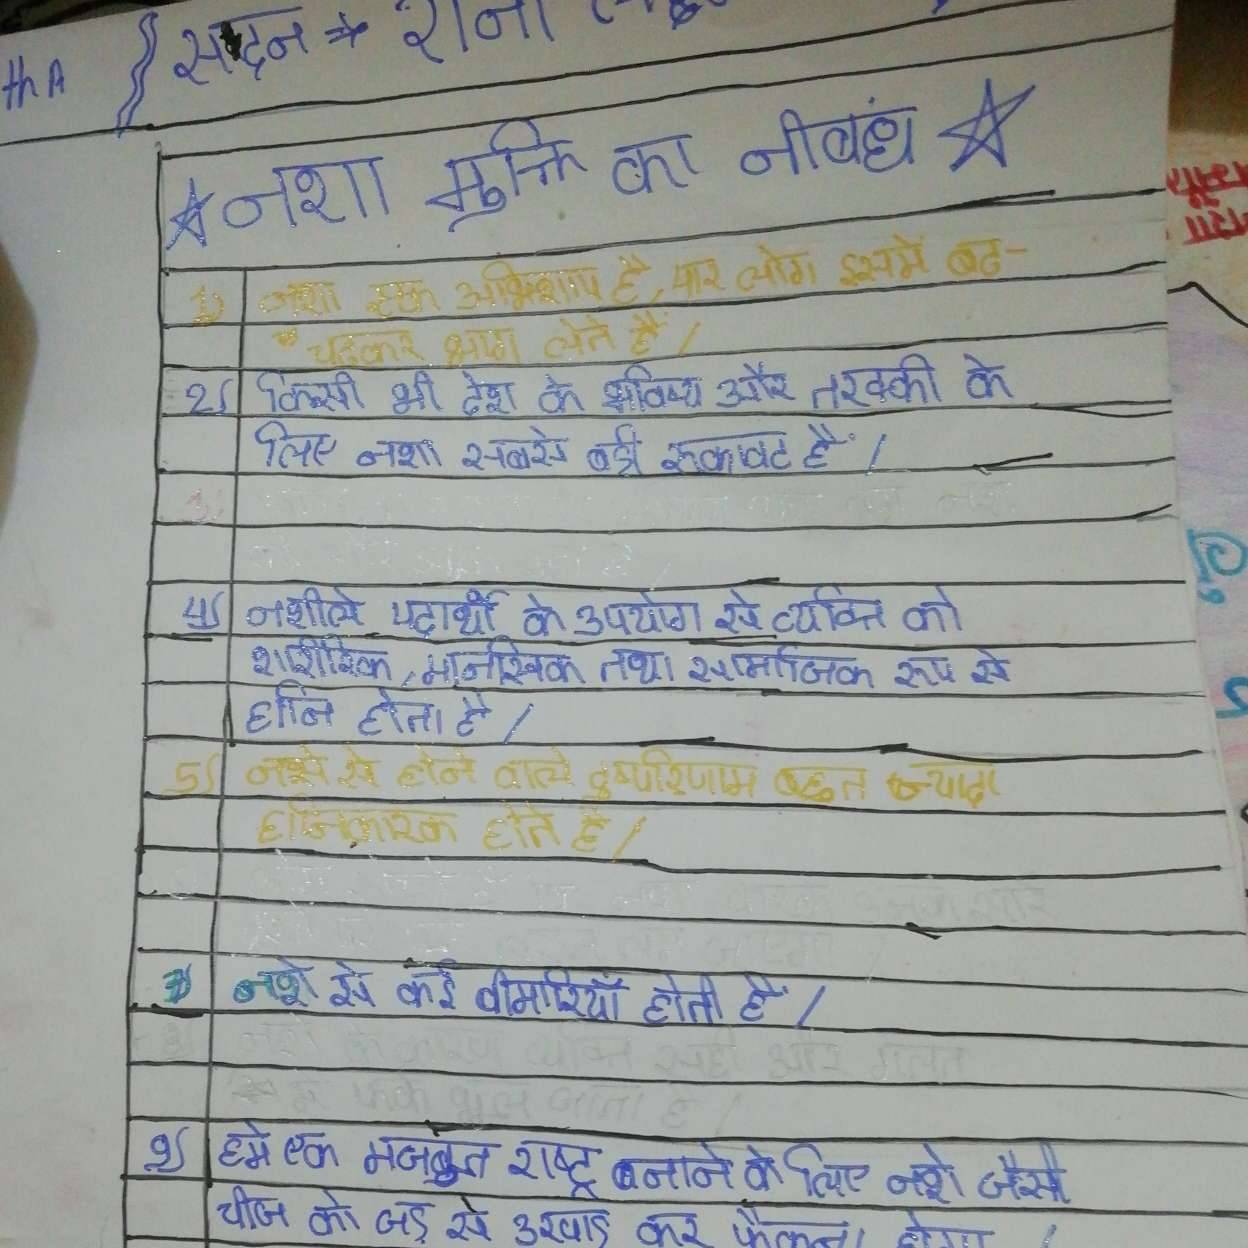 th A
सदन → राना
☆ नशा मुक्ति का नीबंध ☆
1) नशा एक अभिशाप है, पर लोग इसमे बढ-
चढकर भाग लेते हैं।
2) किसी भी देश के भविष्य और तरक्की के
लिए नशा सबसे बड़ी रूकावट है।
4) नशीले पदार्थों के उपयोग से व्यक्ति को
शारीरिक, मानसिक तथा सामाजिक रूप से
हानि होता है।
5) नशे से होने वाले दुष्परिणाम बहुत ज्यादा
हानिकारक होते है।
7) नशे से कई बीमारियाँ होती है।
8) नशे के कारण व्यक्ति सही और गलत
में फर्क भूल जाता है।
9) हमे एक मजबुत राष्ट्र बनाने के लिए नशे जैसी
चीज को जड़ से उखाड़ कर फेंकना होगा।